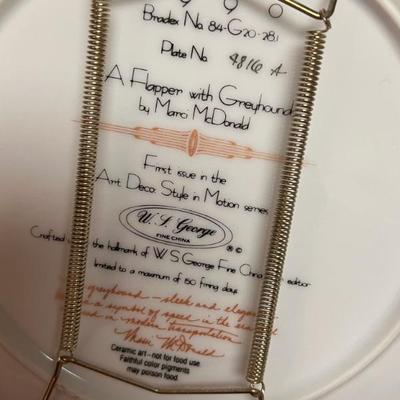 990
Bradex No. 84-G20-28.1
Plate No. 9816 A
A Flapper with Greyhound
by Marci McDonald
First issue in the
Art Deco: Style in Motion series
W. S. George
FINE CHINA
®©
Crafted the hallmark of W S George Fine China edition
limited to a maximum of 150 firing days
greyhound - sleek and elegant
a symbol of speed in the
in modern transportation
Marci McDonald
Ceramic art - not for food use
Faithful color pigments
may poison food.